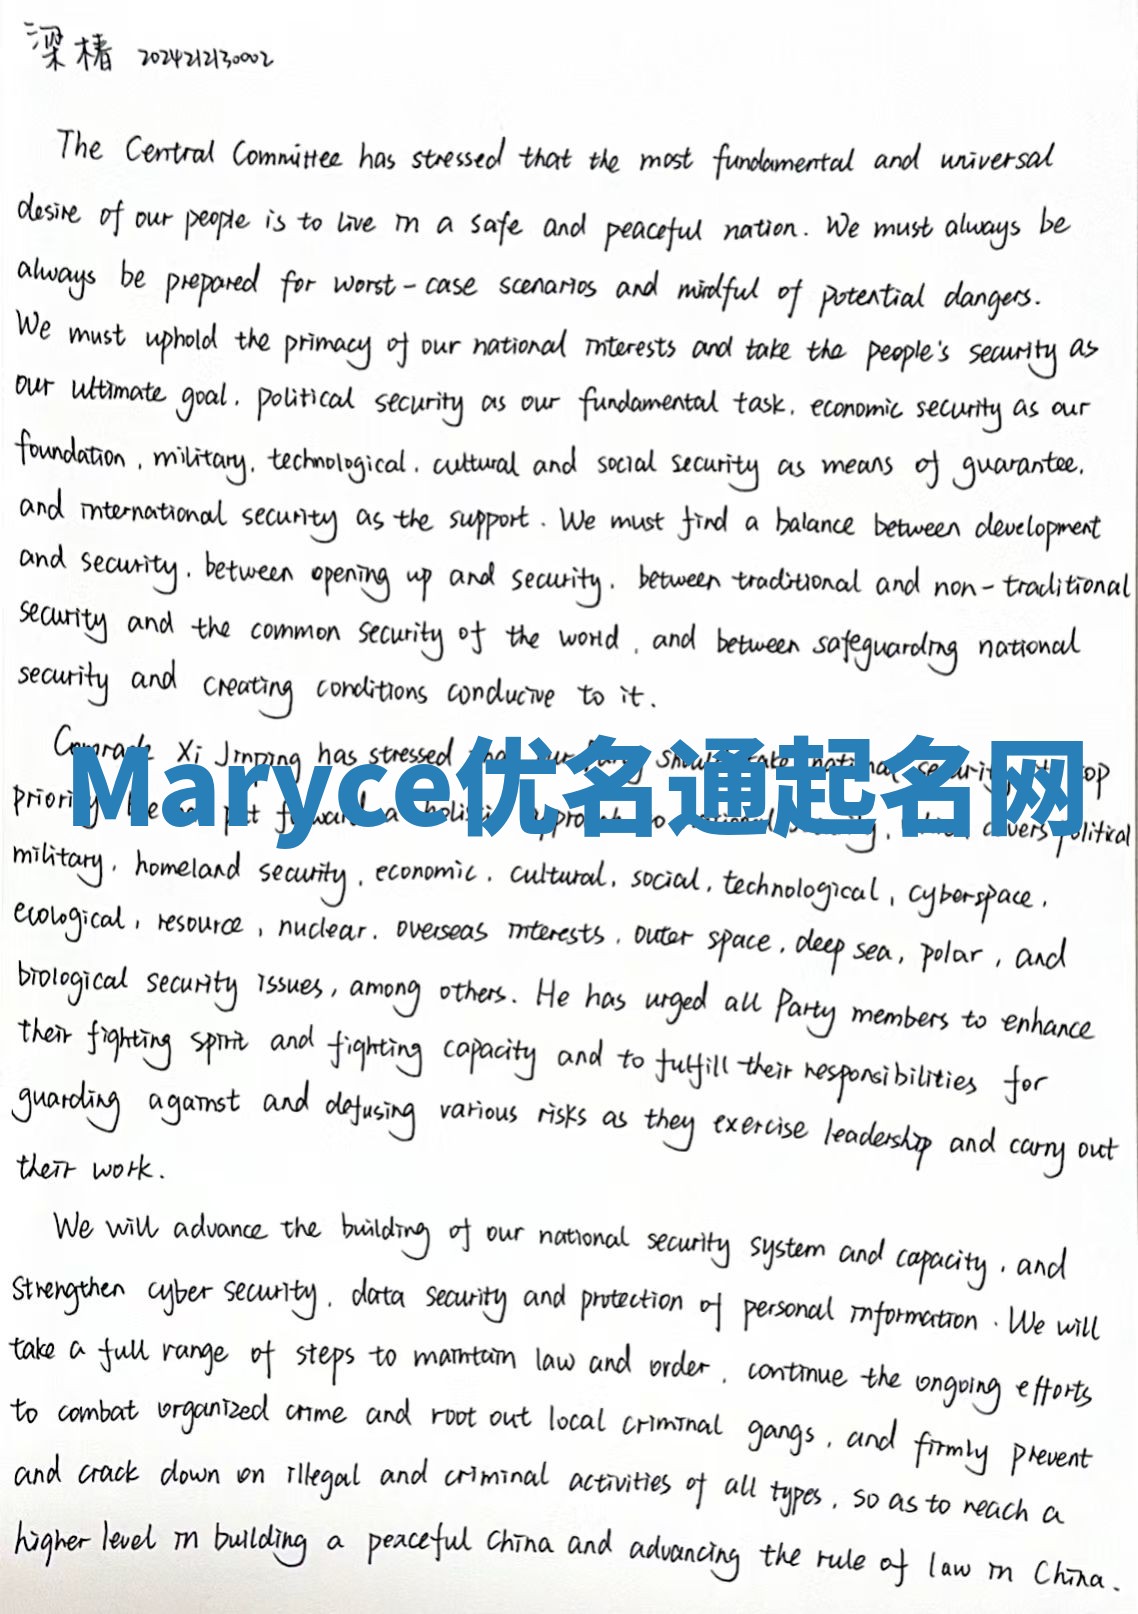 梁椿 2024212130002
The Central Committee has stressed that the most fundamental and universal
desire of our people is to live in a safe and peaceful nation. We must always be
always be prepared for worst-case scenarios and mindful of potential dangers.
We must uphold the primacy of our national interests and take the people's security as
our ultimate goal, political security as our fundamental task, economic security as our
foundation, military, technological, cultural and social security as means of guarantee,
and international security as the support. We must find a balance between development
and security, between opening up and security, between traditional and non-traditional
security and the common security of the world, and between safeguarding national
security and creating conditions conducive to it.
Comrade Xi Jinping has stressed national security top
Maryce优名通起名网
priority put forward a holistic approach to covers political
military, homeland security, economic, cultural, social, technological, cyberspace,
ecological, resource, nuclear, overseas interests, outer space, deep sea, polar, and
biological security issues, among others. He has urged all Party members to enhance
their fighting spirit and fighting capacity and to fulfill their responsibilities for
guarding against and defusing various risks as they exercise leadership and carry out
their work.
We will advance the building of our national security system and capacity, and
strengthen cyber security, data security and protection of personal information. We will
take a full range of steps to maintain law and order, continue the ongoing efforts
to combat organized crime and root out local criminal gangs, and firmly prevent
and crack down on illegal and criminal activities of all types, so as to reach a
higher level in building a peaceful China and advancing the rule of law in China.